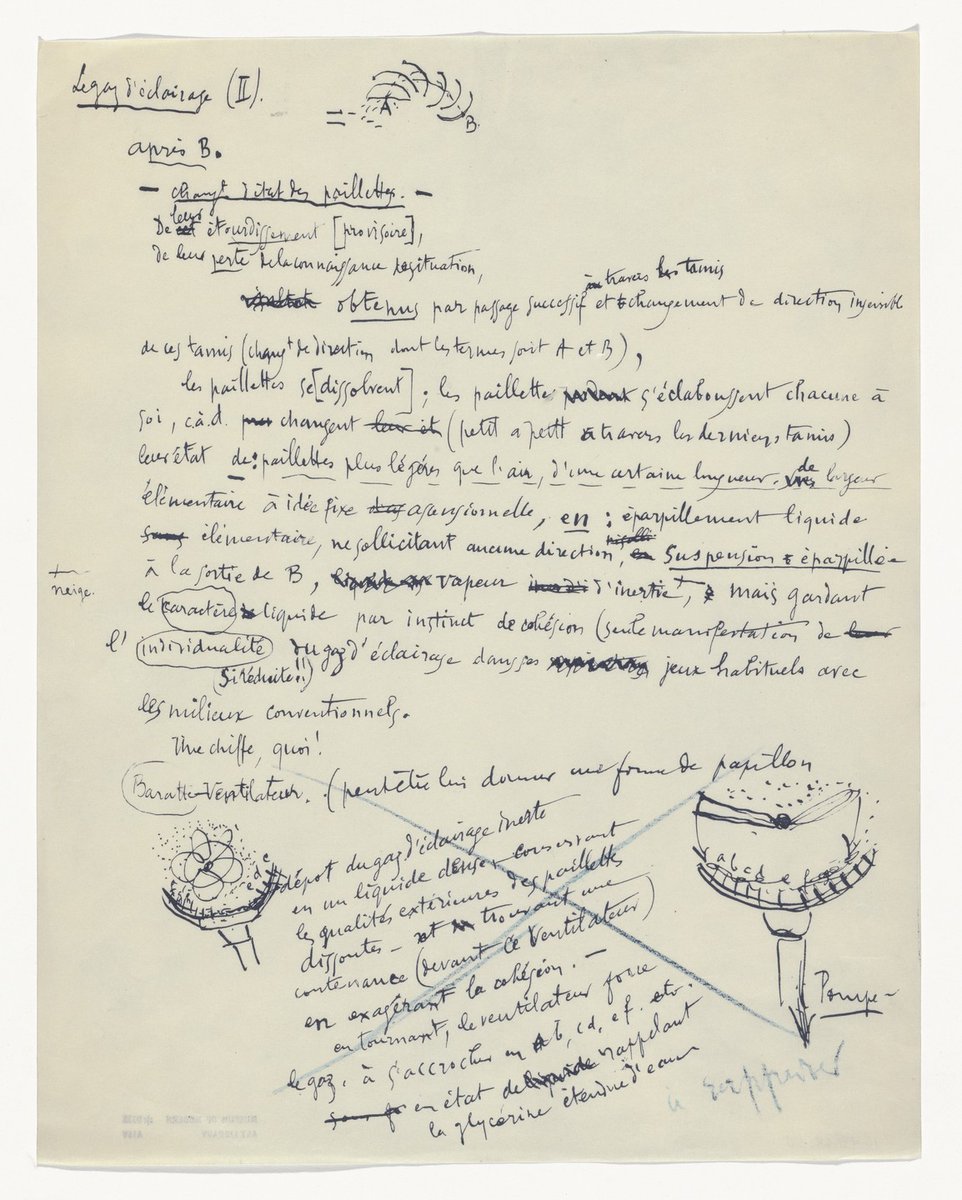 Le gaz d'éclairage (II).
A
B.
après B.
— changt d'état des paillettes. —
De leur étourdissement [provisoire],
de leur perte de la connaissance de situation,
à travers les tamis
obtenus par passage successif et changement de direction insensible
de ces tamis (changt de direction dont les termes sont A et B),
les paillettes se [dissolvent]; les paillette s'éclaboussent chacune à
soi, c.à.d. changent (petit a petit à travers les derniers tamis)
leur état de: paillettes plus légères que l'air, d'une certaine longueur, de largeur
élémentaire à idée fixe ascensionnelle, en : éparpillement liquide
élémentaire, ne sollicitant aucune direction, suspension éparpillée
à la sortie de B, vapeur d'inertie+, mais gardant
+
neige.
le caractère liquide par instinct de cohésion (seule manifestation de
l' individualité du gaz d'éclairage dans ses jeux habituels avec
(si réduite!!)
les milieux conventionnels.
Une chiffe, quoi!
Baratte-Ventilateur. (peut être lui donner une forme de papillon
dépot du gaz d'éclairage inerte
en un liquide dense conservant
les qualités extérieures des paillettes
dissoutes — et trouvant une
contenance (devant le ventilateur)
en exagérant la cohésion. —
en tournant, le ventilateur force
le gaz, à s'accrocher en ab, cd, ef. etc.
en état de liquide rappelant
la glycérine étendue d'eau
a b c d e f
Pompe —